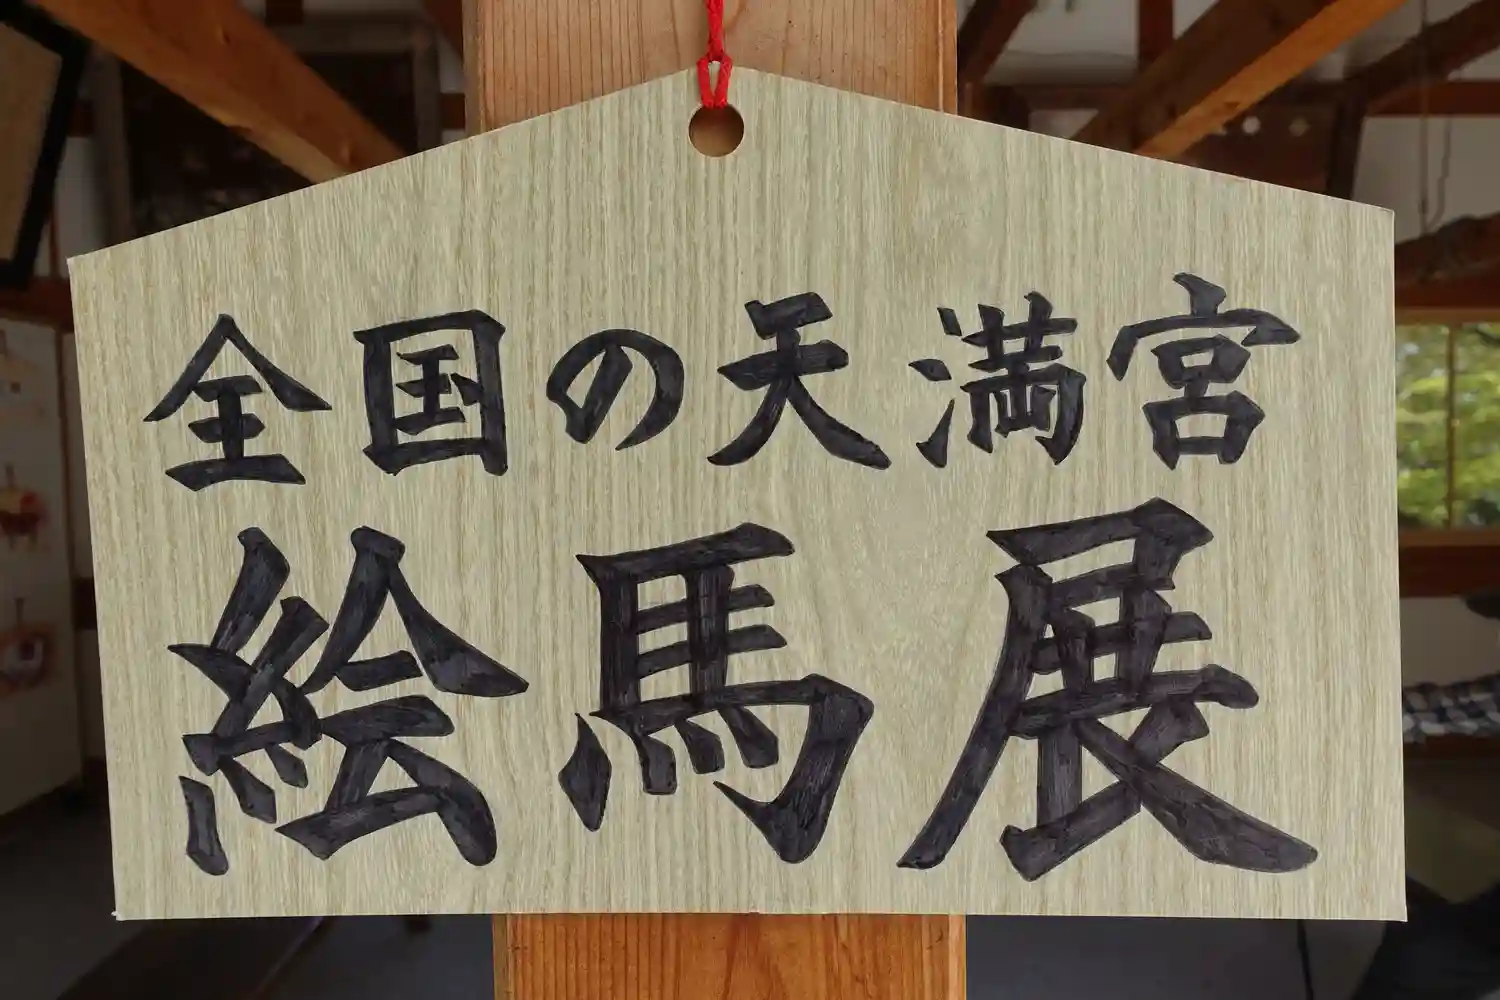 全国の天満宮
絵馬展